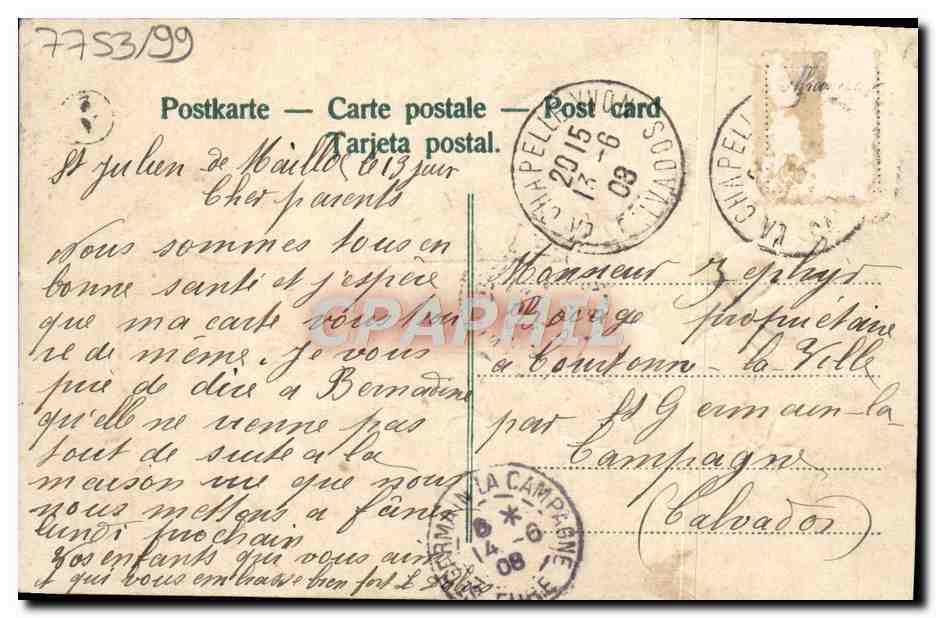 7753/99
Postkarte — Carte postale — Post card
Tarjeta postal.
St Julien de Mailloc le 13 juin
Cher parents
Nous sommes tous en
bonne santé et j'espère
que ma carte vous trou
ve de même. Je vous
prie de dire a Bernadine
qu'elle ne vienne pas
tout de suite a la
maison vu que nous
nous mettons a faner
lundi prochain
Vos enfants qui vous aime
et qui vous embrasse bien fort
Monsieur Zephyr
Bocage propriétaire
a Courtonne-la-Ville
par St Germain-la-
Campagne
(Calvados)
LA CHAPELLE YVON CALVADOS
20 15
13 -6
08
LA CHAPELL
GERMAIN LA CAMPAGNE
6 *
14 -6
08
EURE
CPAPHIL